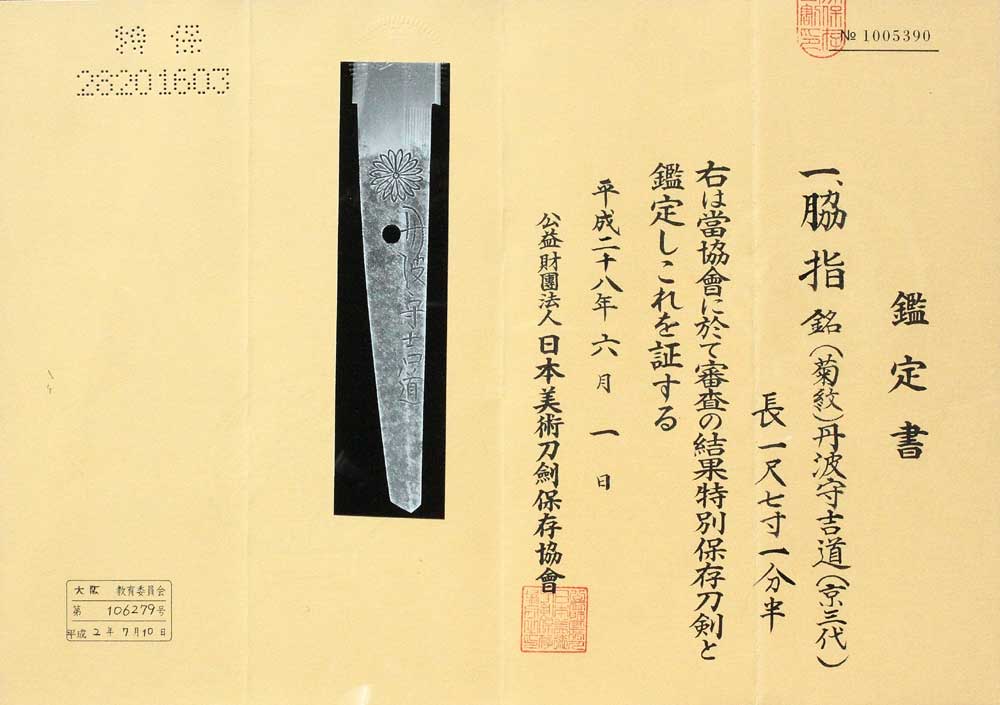 № 1005390
鑑定書
一、脇指 銘(菊紋)丹波守吉道(京三代)
長一尺七寸一分半
右は當協會に於て審査の結果特別保存刀剣と
鑑定しこれを証する
平成二十八年六月一日
公益財團法人日本美術刀劍保存協會
丹波守吉道
特保
28201603
大阪 教育委員会
第 106279号
平成 2年 7月10日